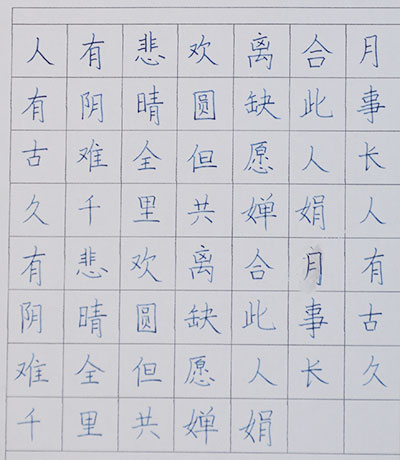 人有悲欢离合月
有阴晴圆缺此事
古难全但愿人长
久千里共婵娟人
有悲欢离合月有
阴晴圆缺此事古
难全但愿人长久
千里共婵娟